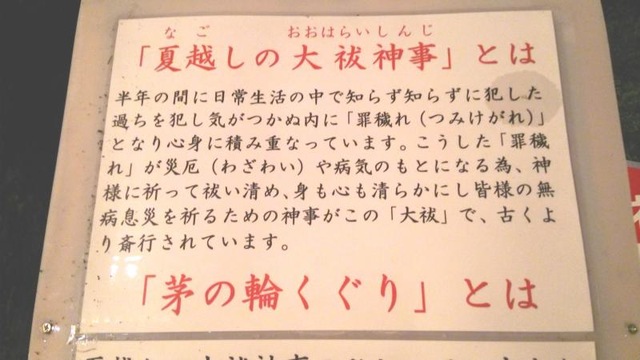 なご　おおはらいしんじ
「夏越しの大祓神事」とは
半年の間に日常生活の中で知らず知らずに犯した
過ちを犯し気がつかぬ内に「罪穢れ（つみけがれ）」
となり心身に積み重なっています。こうした「罪穢
れ」が災厄（わざわい）や病気のもとになる為、神
様に祈って祓い清め、身も心も清らかにし皆様の無
病息災を祈るための神事がこの「大祓」で、古くよ
り斎行されています。
「茅の輪くぐり」とは